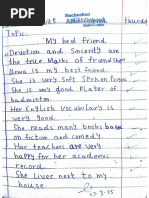 Rachnakar
Thursd
Topic:
"My best friend
Devotion and Sincerity are
the true Marks of friendship
is my best friend.
She is very Soft Spoken Person
She is very good Player of
badminton.
Her English Vocabulary is
very good.
She reads many books based
on fiction and comedy.
Her teachers are very
happy for her academic
record.
She Lives next to my
house.